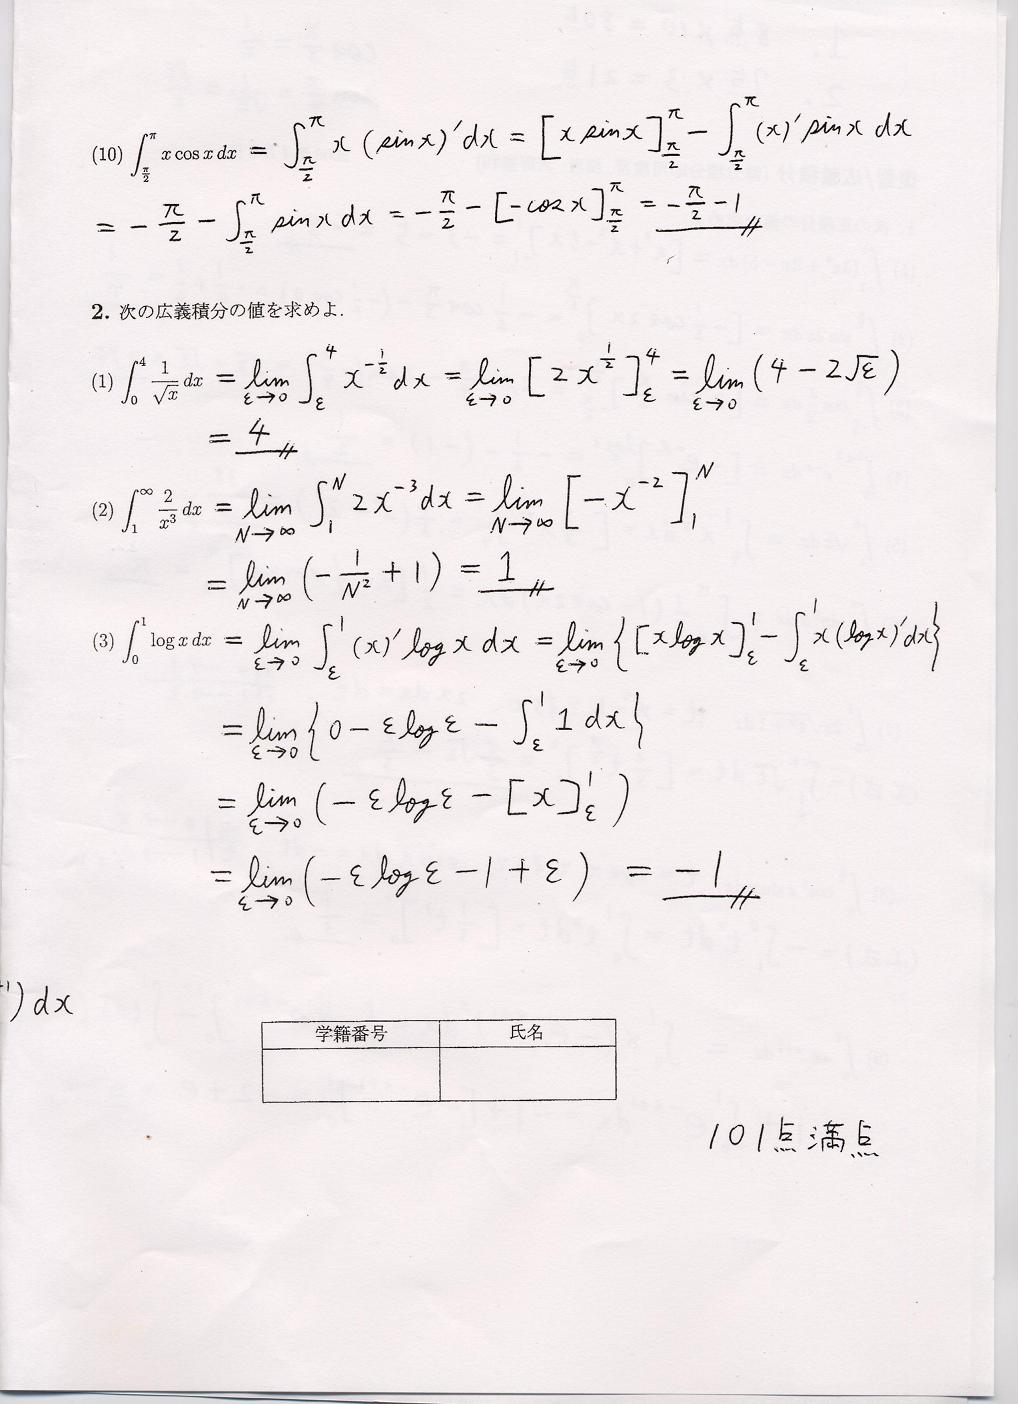 (10) ∫_{π/2}^{π} x cos x dx = ∫_{π/2}^{π} x (sin x)' dx = [x sin x]_{π/2}^{π} − ∫_{π/2}^{π} (x)' sin x dx
= −π/2 − ∫_{π/2}^{π} sin x dx = −π/2 − [−cos x]_{π/2}^{π} = −π/2 − 1
2. 次の広義積分の値を求めよ.
(1) ∫_0^4 1/√x dx = lim_{ε→0} ∫_ε^4 x^{-1/2} dx = lim_{ε→0} [2x^{1/2}]_ε^4 = lim_{ε→0} (4 − 2√ε)
= 4
(2) ∫_1^∞ 2/x^3 dx = lim_{N→∞} ∫_1^N 2x^{-3} dx = lim_{N→∞} [−x^{-2}]_1^N
= lim_{N→∞} (−1/N^2 + 1) = 1
(3) ∫_0^1 log x dx = lim_{ε→0} ∫_ε^1 (x)' log x dx = lim_{ε→0} {[x log x]_ε^1 − ∫_ε^1 x(log x)' dx}
= lim_{ε→0} {0 − ε log ε − ∫_ε^1 1 dx}
= lim_{ε→0} (−ε log ε − [x]_ε^1)
= lim_{ε→0} (−ε log ε − 1 + ε) = −1
) dx
学籍番号 氏名
101点満点